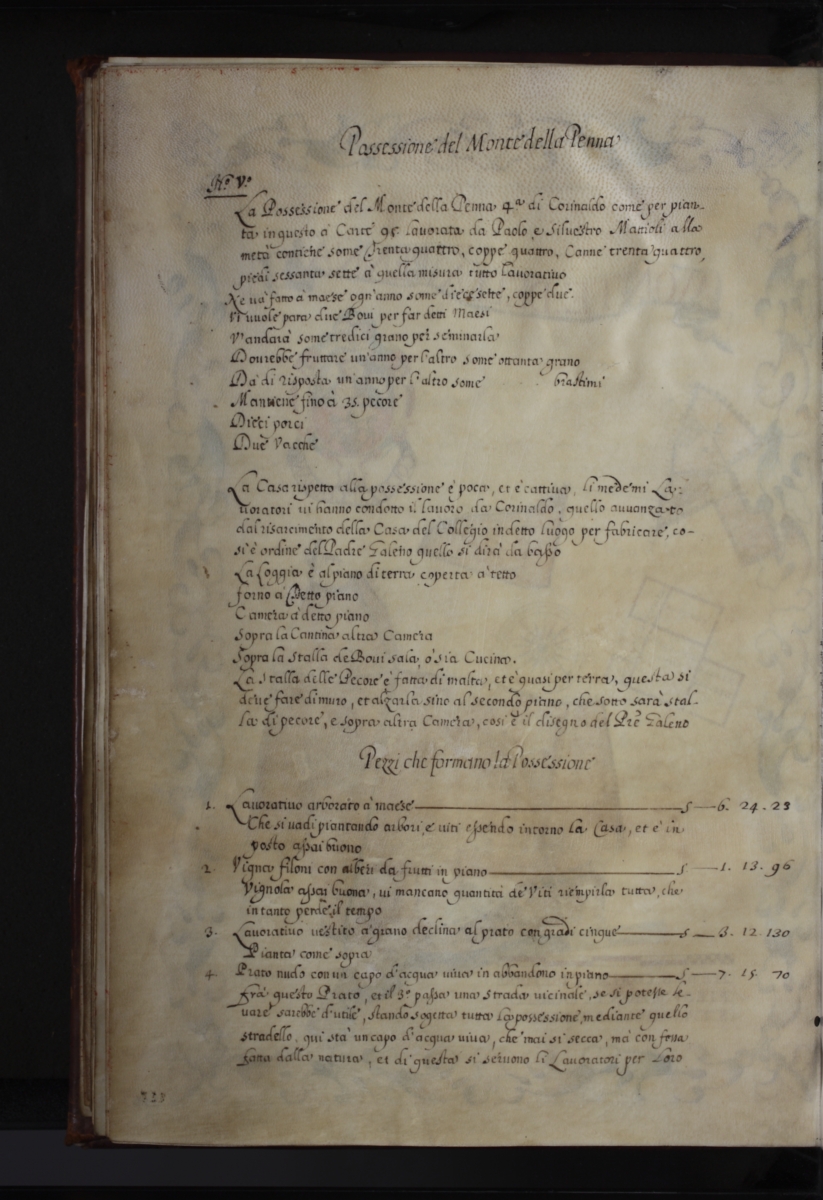 Possessione del Monte della Penna
N.º V.º
La Possessione del Monte della Penna 4ª di Corinaldo come per pian-
ta in questo à Carte 95 lavorata da Paolo e Silvestro Mattioli alla
metà contiche some Trenta quattro, coppe quattro, Canne trenta quattro
piedi sessanta sette à quella misura tutto lavorativo
Ne và fatto à maese ogn'anno some diecesette, coppe due.
Vi vuole para due Bovi per far detti Maesi
Vandarà some tredici grano per seminarla
Dourebbe fruttare un'anno per l'altro some ottanta grano
Dà di risposta un anno per l'altro some
Mantiene fino à 35. pecore
Dieci porci
Due Vacche
La Casa rispetto alla possessione è poca, et è cattiva, li medemi La-
uoratori ui hanno condotto il lauoro da Corinaldo, quello auuanzato
dal risarcimento della Casa del Collegio in detto luogo per fabricare, co-
si è ordine del Padre Galeno quello si dirà da basso
La Loggia è al piano di terra coperta à tetto
forno à detto piano
Camera à detto piano
Sopra la Cantina altra Camera
Sopra la Stalla de Boui sala, ò sia Cucina.
La Stalla delle Pecore è fatta di malta, et è quasi per terra, questa si
deue fare di muro, et alzarla sino al secondo piano, che sotto sarà stal-
la di pecore, e sopra altra Camera, cosi è il disegno del Pre Galeno
Pezzi che formano la Possessione
1. Lauoratiuo arborato à maese S 6. 24. 23
Che si uadi piantando arbori, e uiti essendo intorno la Casa, et è in
posto assai buono
2. Vigna filoni con alberi da frutti in piano S 1. 13. 96
Vignola assai buona, ui mancano quantità de Viti riempirla tutta, che
in tanto perde il tempo
3. Lauoratiuo uestito à grano declina al prato con gradi cinque S 3. 12. 130
Pianta come sopra
4. Prato nudo con un capo d'acqua uiua in abbandono in piano S 7. 15. 70
frà questo Prato, et il 3º passa una strada uicinale, se si potesse le-
uare sarebbe d'utile, stando sogetta tutta la possessione mediante quello
stradello, qui stà un capo d'acqua uiua, che mai si secca, mà con
fatta dalla natura, et di questa si seruono li Lauoratori per Loro
333